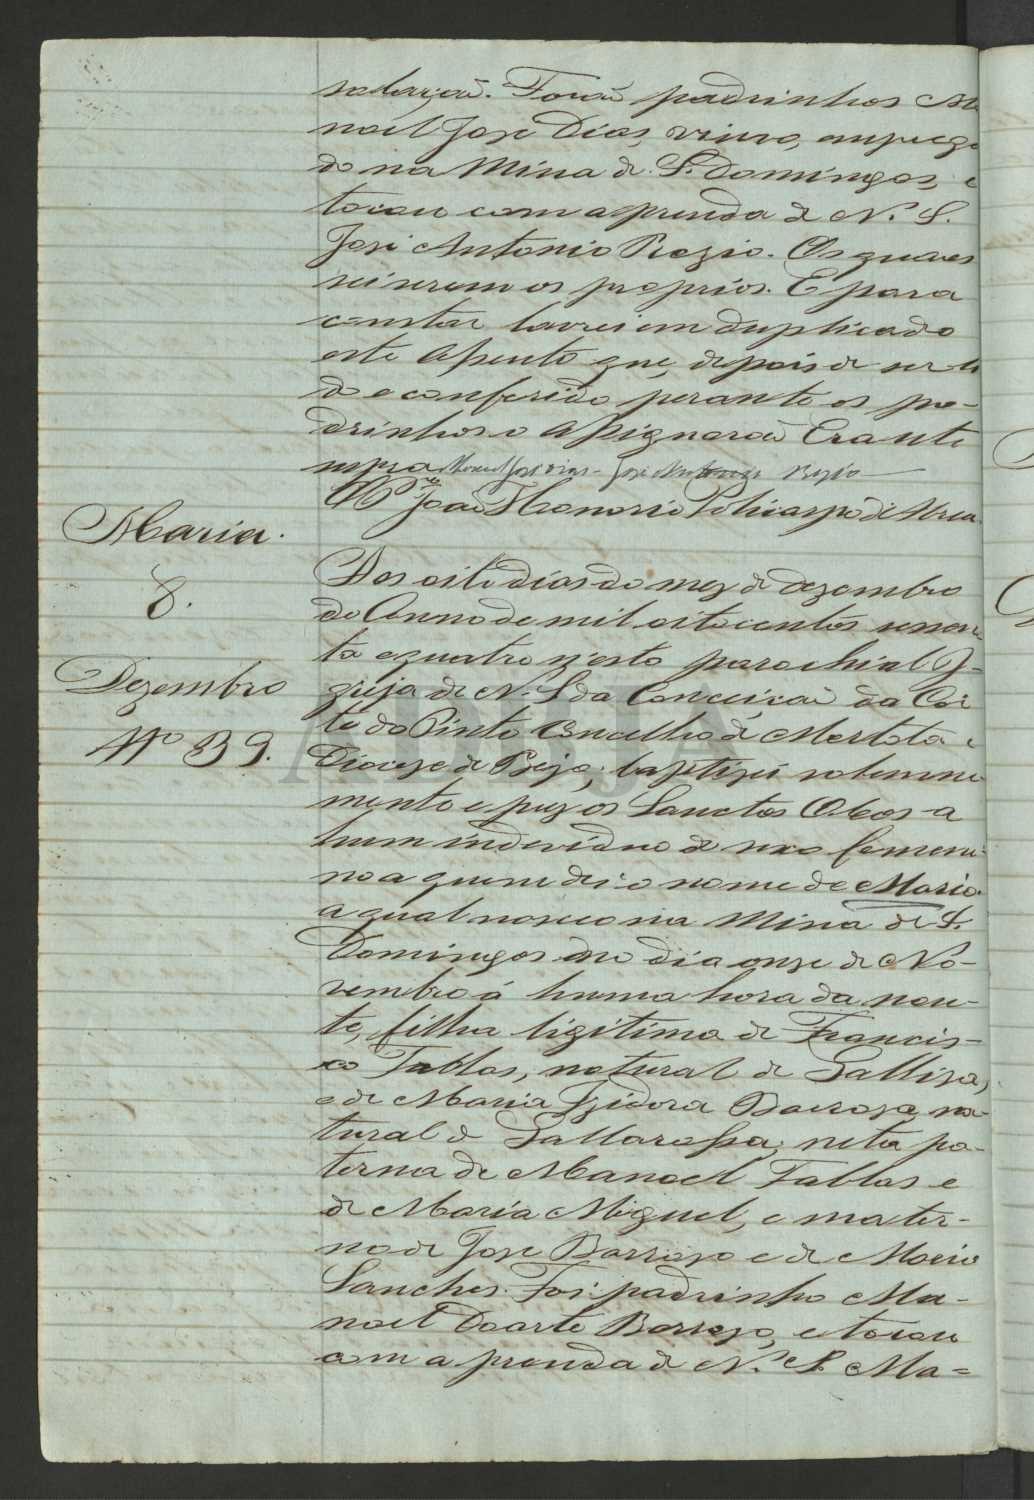 Forão padrinhos Ma
noel Jose Dias, viuvo, emprega
do na Mina de S. Domingos, e
tocou com a prenda de N. S.
José Antonio Rezio. Os quaes
sei serem os proprios. E para
constar lavrei em duplicado
este Assento que, depois de ser li
do e conferido perante os pa-
drinhos o assignarão Era ut
supra Manoel Jose Dias - Jose Antonio Rezio
O P.e João Honorio Policarpo
Maria.
8.
Dezembro
Nº 39.
Aos oito dias do mez de dezembro
do Anno de mil oitocentos sessen-
ta e quatro n'esta parochial I-
greja de N. S. da Conceição da Cor
te do Pinto Concelho de Mertola e
Diocese de Beja, baptizei solemne
mente e puz os Sanctos Oleos a
hum individuo de sexo femeni-
no a quem dei o nome de Maria
a qual nasceo na Mina de S.
Domingos no dia onze de No-
vembro á huma hora da nou-
te, filha ligitima de Francis-
co Tablas, natural de Galliza,
e de Maria Izidora Barroza na-
tural de neta pa-
terna de Manoel Tablas e
de Maria Miguel, e mater-
na de Jose Barrozo e de Maria
Sanches. Foi padrinho Ma-
noel Doarte Barrozo, e tocou
com a prenda de N. S. Ma=